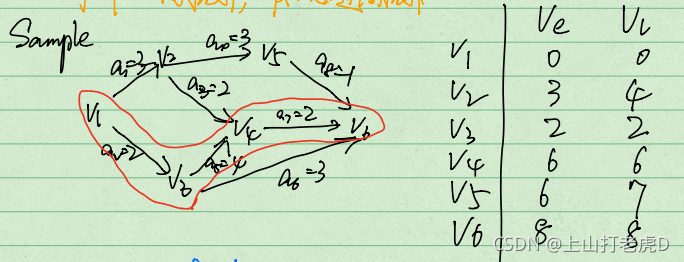 Sample
a₁=3 V₂ =3 V₅
=2 a₈=1
V₁ V₄ a₇=2 V₆
a₂=2 a₅=4
V₃ a₆=3
Ve Vl
V₁ 0 0
V₂ 3 4
V₃ 2 2
V₄ 6 6
V₅ 6 7
V₆ 8 8
CSDN @上山打老虎D